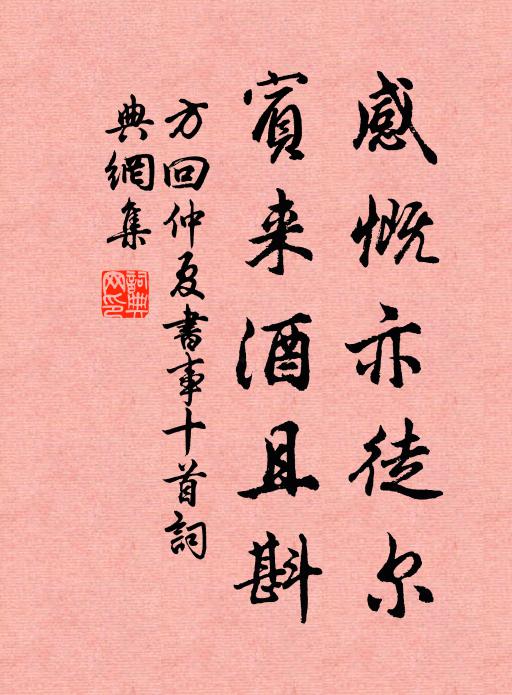 感慨亦徒尔
賓来酒且斟
方回仲夏書事十首詞
典網集
詞典網印